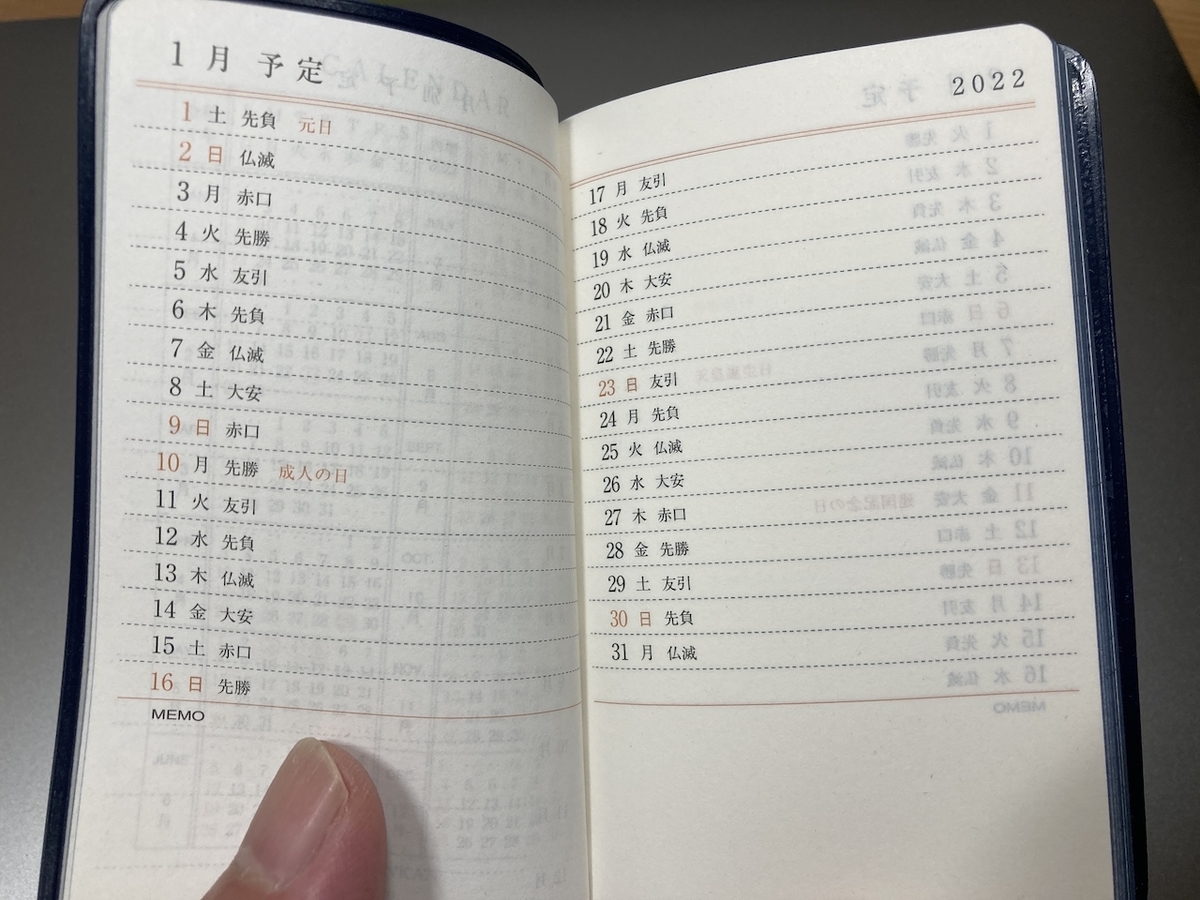 1月 予定
1 土 先負 元日
2 日 仏滅
3 月 赤口
4 火 先勝
5 水 友引
6 木 先負
7 金 仏滅
8 土 大安
9 日 赤口
10 月 先勝 成人の日
11 火 友引
12 水 先負
13 木 仏滅
14 金 大安
15 土 赤口
16 日 先勝
MEMO
2022
17 月 友引
18 火 先負
19 水 仏滅
20 木 大安
21 金 赤口
22 土 先勝
23 日 友引
24 月 先負
25 火 仏滅
26 水 大安
27 木 赤口
28 金 先勝
29 土 友引
30 日 先負
31 月 仏滅